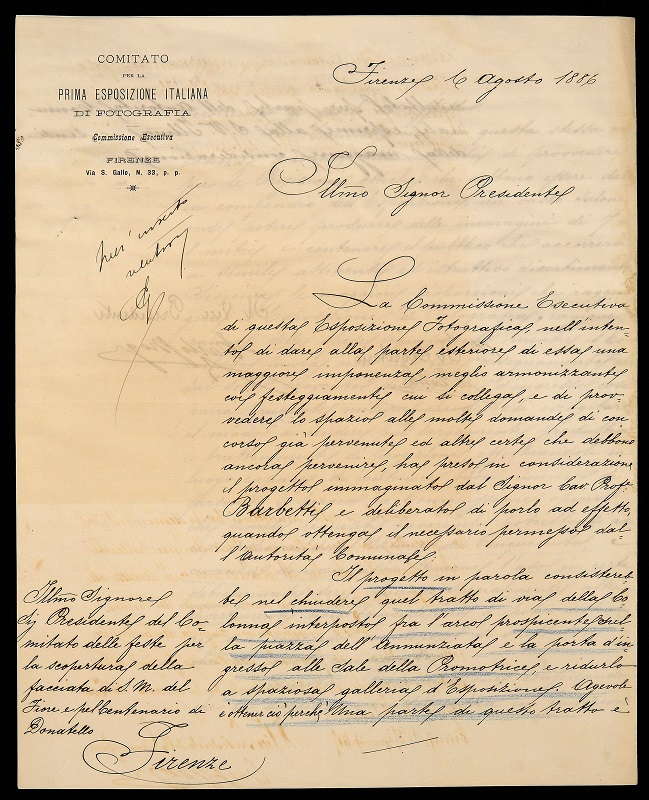 COMITATO
PER LA
PRIMA ESPOSIZIONE ITALIANA
DI FOTOGRAFIA
Commissione Esecutiva
FIRENZE
Via S. Gallo, N. 33, p. p.
Firenze 6 Agosto 1886
Nell' inserto
relativo
Illmo Signor Presidente
La Commissione Esecutiva
di questa Esposizione Fotografica, nell'inten-
to di dare alla parte esteriore di essa una
maggiore imponenza, meglio armonizzante
coi festeggiamenti cui si collega, e di prov-
vedere lo spazio alle molte domande di con
corso già pervenute ed altre certe che debbono
ancora pervenire, ha preso in considerazione
il progetto immaginato dal Signor Cav. Prof.
Barbetti e deliberato di porlo ad effetto,
quando ottenga il necessario permesso dal-
l'Autorità Comunale.
Il progetto in parola consistereb
be nel chiudere quel tratto di via della Co
lonna interposto fra l'arco prospicente nel
la piazza dell'Annunziata e la porta d'in
gresso alle Sale della Promotrice e ridurlo
a spaziosa galleria d'Esposizione. Agevole
è ottener ciò perchè una parte di questo tratto è
Illmo Signore
Sig Presidente del Co-
mitato delle feste per
la scopertura della
facciata di S. M. del
Fiore e pel Centenario di
Donatello
Firenze